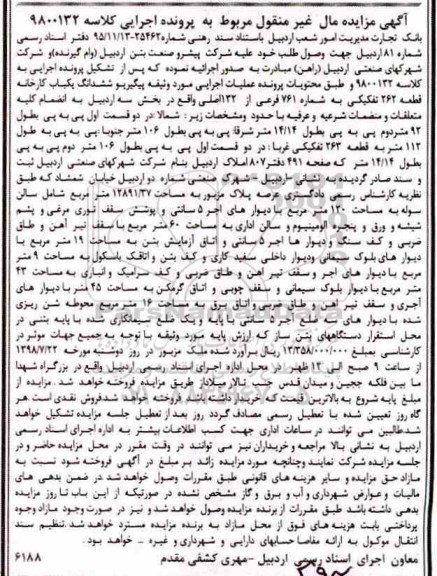 آگهی مزایده مال غیر منقول مربوط به پرونده اجرایی کلاسه ۹۸۰۰۱۳۲
بانک تجارت مدیریت امور شعب اردبیل باستناد سند رهنی شماره ۲۵۴۶۲-۹۵/۱۱/۱۳ دفتر اسناد رسمی
شماره ۸۱ اردبیل جهت وصول طلب خود علیه شرکت پیشرو صنعت بتن اردبیل (وام گیرنده) و شرکت
شهرکهای صنعتی اردبیل (راهن) مبادرت به صدور اجرائیه نموده که پس از تشکیل پرونده اجرایی به
کلاسه ۹۸۰۰۱۳۲ و طبق محتویات پرونده عملیات اجرایی مورد وثیقه پیگیر و ششدانگ یکباب کارخانه
قطعه ۲۶۲ تفکیکی به شماره ۷۶۱ فرعی از ۱۳۲ اصلی واقع در بخش سه اردبیل به انضمام کلیه
متعلقات و منضمات شرعیه و عرفیه با حدود ومشخصات زیر: شمالا: در دو قسمت اول پی به پی بطول
۹۲ متر دوم پی به پی بطول ۱۴/۱۴ متر شرقا: پی به پی بطول ۱۰۶ متر جنوبا: پی به پی به طول
۱۱۲ متر به قطعه ۲۶۳ تفکیکی غربا: در دو قسمت اول پی به پی بطول ۱۰۶ متر دوم پی به پی
بطول ۱۴/۱۴ متر که صفحه ۴۹۱ دفتر ۸۰۷ املاک اردبیل بنام شرکت شهرکهای صنعتی اردبیل ثبت
و سند صادر گردیده به نشانی -اردبیل -شهرک صنعتی شماره دو اردبیل خیابان شمشاد که طبق
نظریه کارشناس رسمی دادگستری عرصه پلاک مزبور به مساحت ۱۲۸۹۱/۳۷ متر مربع شامل سالن
سوله به مساحت ۱۲۰ متر مربع با دیوار های اجر ۵ سانتی و پوشش سقف توری مرغی و پشم
شیشه و ورق و پنجره آلومینیوم و سالن اداری به مساحت ۶۰ متر مربع با سقف تیر آهن و طاق
ضربی و کف سنگ و دیوار ها اجر ۵ سانتی و اتاق آزمایش بتن به مساحت ۱۹ متر مربع با
دیوار های بلوک سیمانی ودیوار داخلی سفید کاری و کف بتن و اتاقک باسکول به مساحت ۹ متر
مربع با دیوار های اجر و سقف تیر آهن و طاق ضربی و کف سرامیک و انباری به مساحت ۴۳
متر مربع با دیوار بلوک سیمانی و سقف چوبی و اتاق گرمکن به مساحت ۴۵ متر با دیوار های
آجری و سقف تیر آهن و طاق ضربی و اتاق برق به مساحت ۱۶ متر مربع محوطه شن ریزی
شده با دیوار های سه ضلع اجر ۵ سانتی با پایه و یک ضلع سیمکاری شده با پایه بتنی در
محل استقرار دستگاههای بتن ساز که ارزش پایه مورد وثیقه با توجه به جمیع جهات موثر در
کارشناسی بمبلغ ۱۳/۳۵۸/۰۰۰/۰۰۰ ریال برآورد شده ملک مزبور در روز دوشنبه مورخه ۱۳۹۸/۷/۲۲
از ساعت ۹ صبح الی ۱۲ ظهر در محل اداره اجرای اسناد رسمی اردبیل واقع در بزرگراه شهدا
ما بین فلکه ججین و میدان قدس جنب تالار میلاد از طریق مزایده فروخته خواهد شد. مزایده از
مبلغ پایه شروع به بالاترین قیمت که خریدار داشته باشد فروخته خواهد شد فروش نقدی است هر
گاه روز تعیین شده با تعطیل رسمی مصادف گردد روز بعد از تعطیل جلسه مزایده تشکیل خواهد
شد طالبین می توانند در ساعات اداری جهت کسب اطلاعات بیشتر به اداره اجرای اسناد رسمی
اردبیل به نشانی بالا مراجعه و خریداران نیز می توانند در وقت مقرر در محل مزایده حاضر و در
جلسه مزایده شرکت نمایند وچنانچه مورد مزایده زائد بر مبلغ در آگهی فروخته شود نسبت به
مازاد حق مزایده و سایر هزینه های قانونی طبق مقررات وصول خواهد شد در ضمن بدهی های
مالیات و عوارض شهرداری و آب و برق و گاز مشخص نشده در صورتیکه از این باب تا روز مزایده
بدهی داشته باشد طبق مقررات از برنده مزایده وصول خواهد شد و نیز در صورت وجود مازاد وجوه
پرداختی بابت هزینه های فوق از محل مازاد به برنده مزایده مسترد خواهد شد. تنظیم سند
انتقال موکول به ارائه مفاصا حسابهای دارایی و شهرداری و غیره - خواهد بود.
معاون اجرای اسناد رسمی اردبیل - مهری کشفی مقدم
۶۱۸۸